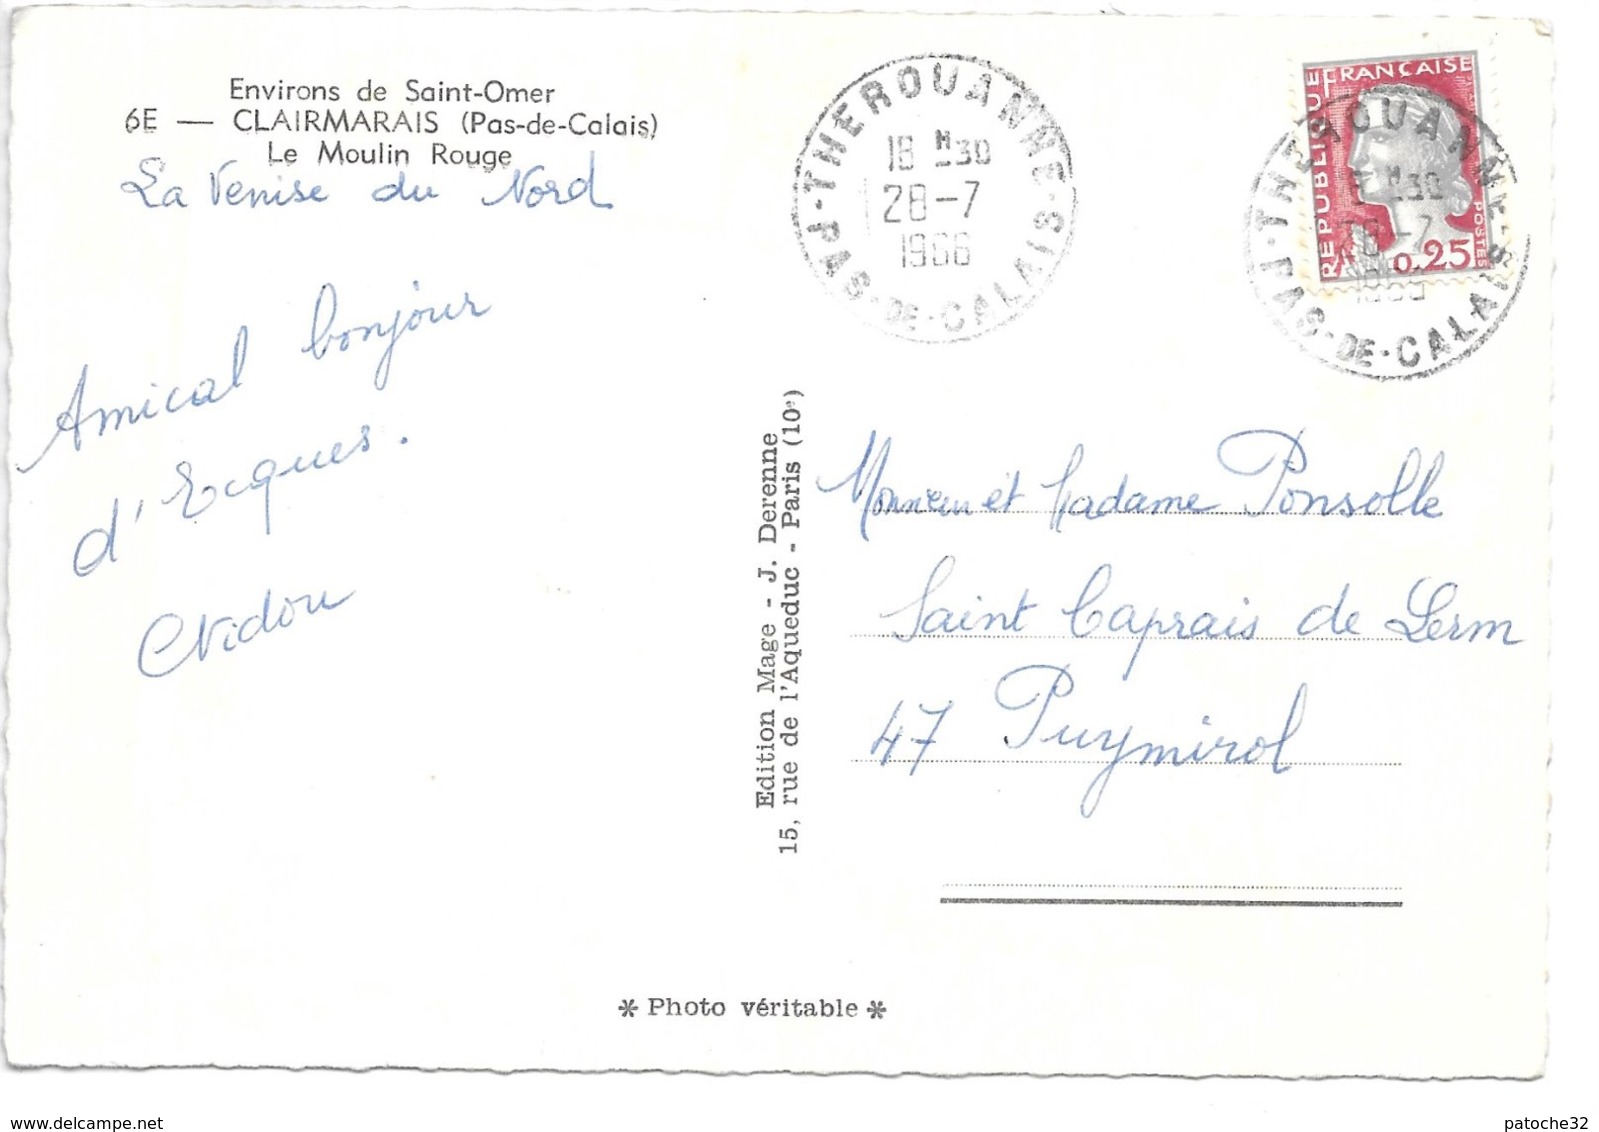 Environs de Saint-Omer
6E — CLAIRMARAIS (Pas-de-Calais)
Le Moulin Rouge
La Venise du Nord
Amical bonjour
d'Ecques.
THEROUANNE
18 H 30
28-7
1966
PAS-DE-CALAIS
REPUBLIQUE FRANÇAISE
0,25
POSTES
THEROUANNE
PAS-DE-CALAIS
Edition Mage - J. Derenne
15, rue de l'Aqueduc - Paris (10e)
Monsieur et Madame Ponsolle
Saint Caprais de Lerm
47 Puymirol
* Photo véritable *
patoche32